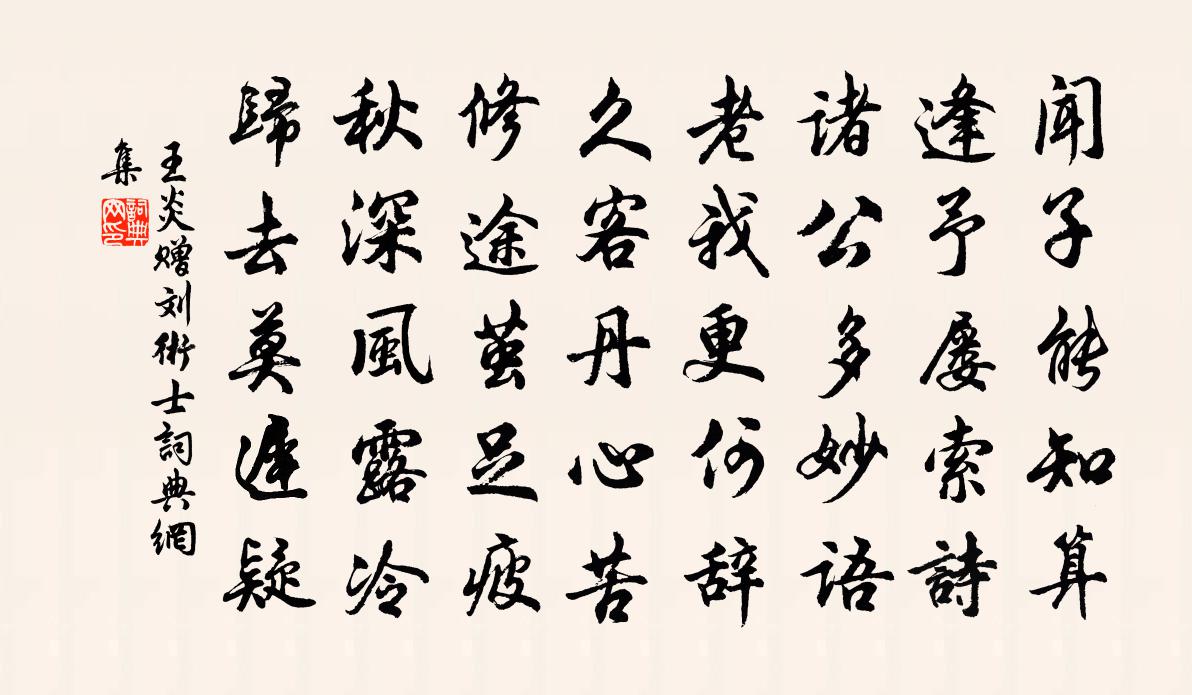 闻子能知算
逢予屡索詩
诸公多妙语
老我更何辞
久客丹心苦
修途茧足疲
秋深風露冷
歸去莫遲疑
王炎赠刘術士詞典網
集
詞典網印